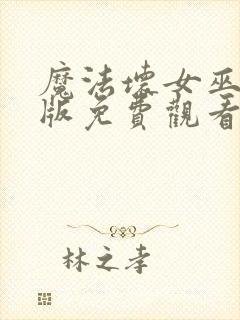 魔法壞女巫
版免費觀看
林之孝